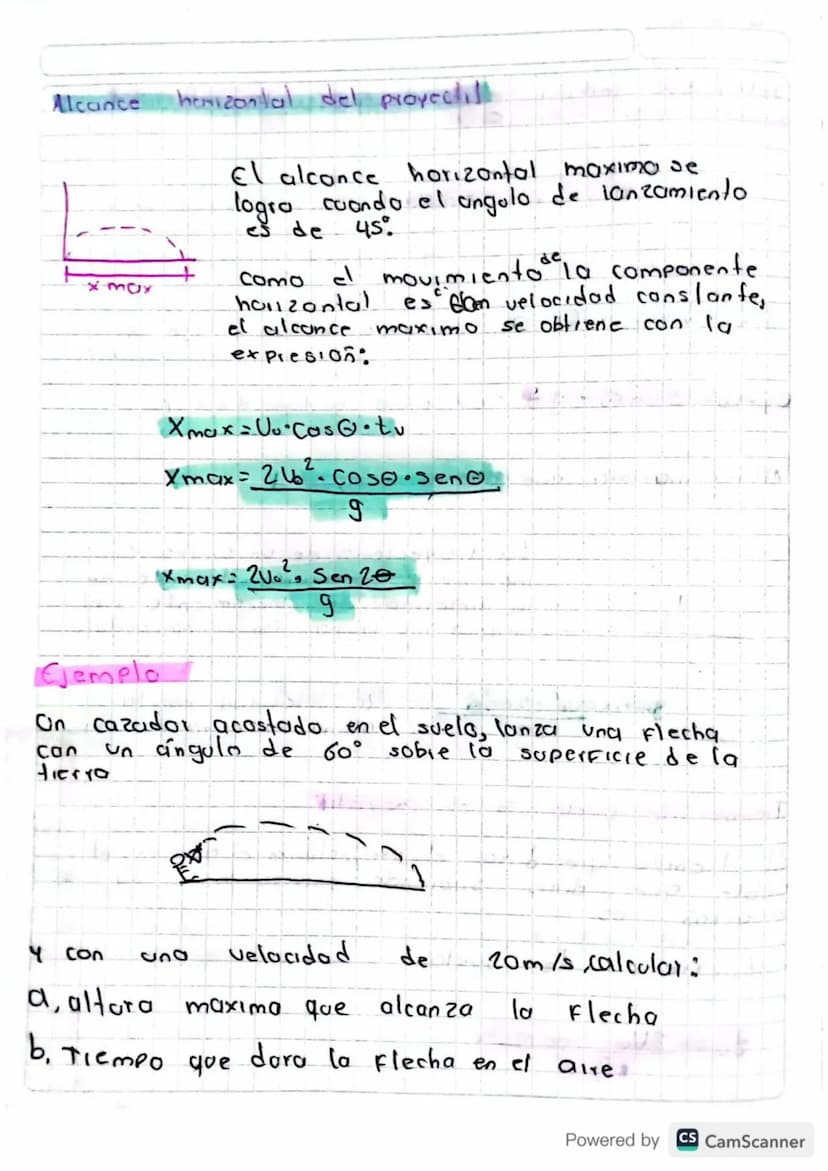 Alcance horizontal del proyectil
El alcance horizontal maximo se
logra cuando el angulo de lanzamiento
es de 45°.
x max
como el movimiento de la componente
horizontal es con velocidad constante,
el alcance maximo se obtiene con la
expresioñ:
Xmax = Vo · Cosθ · tv
Xmax = 2Vo² · cosθ · senθ / g
Xmax = 2Vo² · Sen 2θ / g
Ejemplo
Un cazador acostado en el suelo, lanza una Flecha
con un ángulo de 60° sobre la superficie de la
tierra
y con una velocidad de 20m/s calcular:
a, altura maxima que alcanza la Flecha
b. Tiempo que dura la Flecha en el aire.
Powered by CS CamScanner